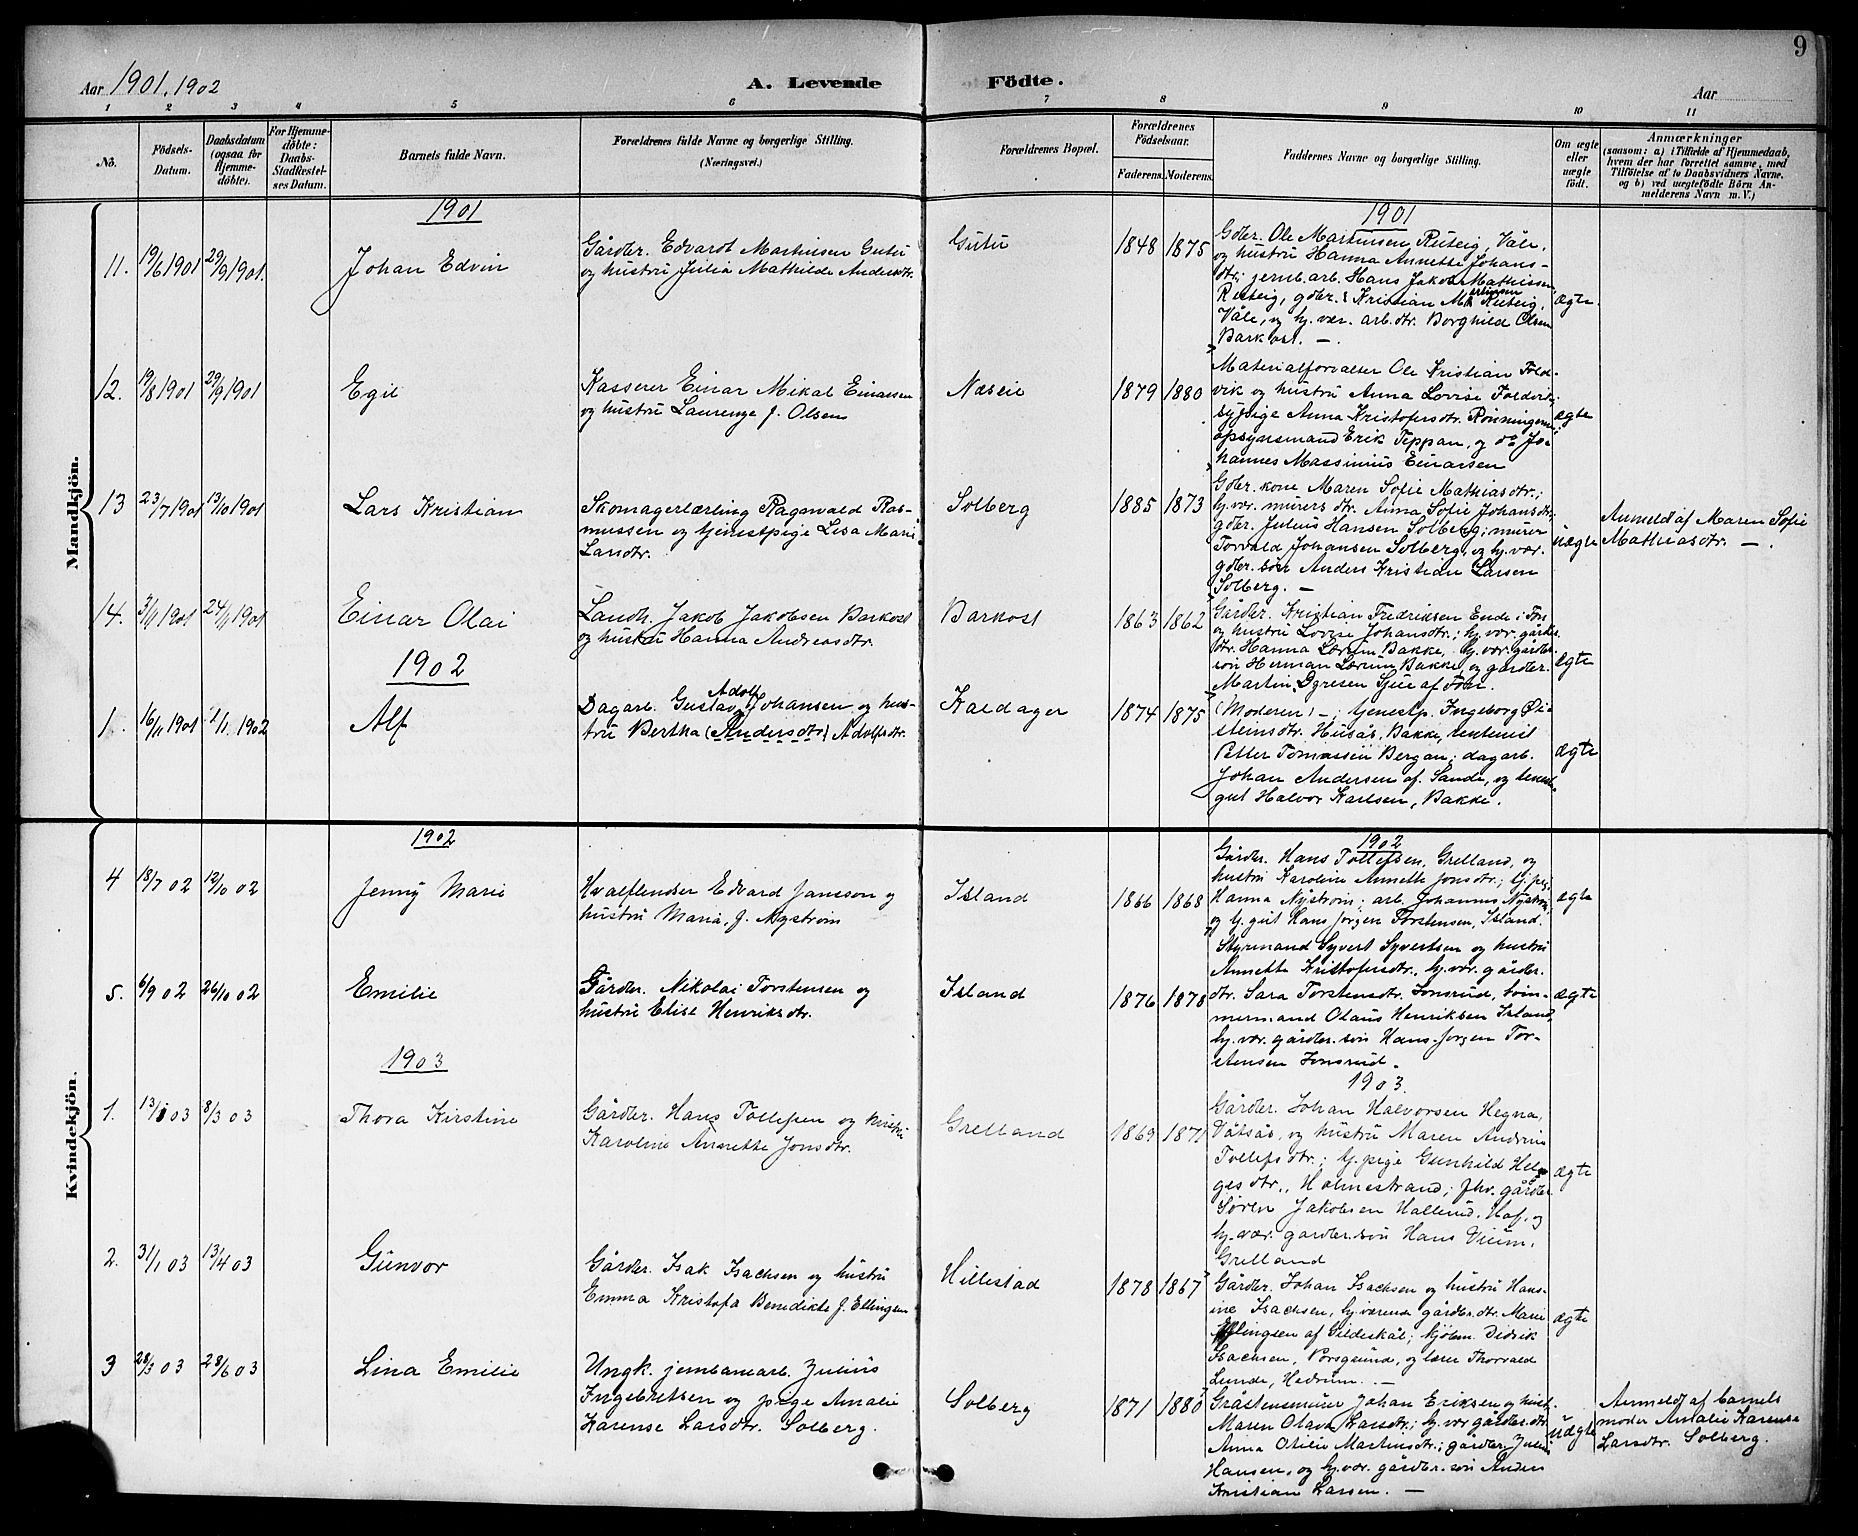 9
Aar 1901, 1902
A. Levende Födte.
Aar
1 2 3 4 5 6 7 8 9 10 11
No.
Födsels-
Datum.
Daabsdatum
(ogsaa for
Hjemme-
döbte).
For Hjemme-
döbte:
Daabs-
Stadfæstel-
ses Datum.
Barnets fulde Navn.
Forældrenes fulde Navne og borgerlige Stilling.
(Næringsvei.)
Forældrenes Bopæl.
Forældrenes
Födselsaar.
Faderens. Moderens.
Faddernes Navne og borgerlige Stilling.
Om ægte
eller
uægte
födt.
Anmærkninger
(saasom: a) i Tilfælde af Hjemmedaab,
hvem der har forrettet samme, med
Tilföielse af to Daabsvidners Navne.
og b) ved uægtefödte Börn An-
melderens Navn m. V.)
Mandkjön.
1901
1901
11. 19/6 1901 29/9 1901.
Johan Edvin
Gårdbr. Edvardt Martinsen Gutu
og hustru Julia Mathilde Andersdtr.
Gutu
1848 1875
Gdbr. Ole Martinsen, Ruteig, Våle,
og hustru Hanna Annette Johans-
dtr; jernb.arb. Hans Jakob Mathissen
Ruteig, gdbr. Kristian Martinsen Ruteig,
Våle, og hj. vær. arb. dtr. Borghild Olsen
Barkost. —
Ægte
12. 19/8 1901 29/9 1901
Egil
Kasserer Einar Mikal Einarsen
og hustru Laurenze f. Olsen
Næseie
1879 1880
Materialforvalter Ole Kristian Fold-
vik og hustru Anna Lovise Foldvik,
sypige Anna Kristofersdtr. Rönningen,
opsynsmand Erik Teppan, og do Jo-
hannes Massimius Einarsen
ægte
13 23/7 1901 13/10 1901
Lars Kristian
Skomagerlærling Ragnvald Ras-
mussen og tjenestpige Lisa Marie
Larsdtr.
Solberg
1885 1873
Gdbr. kone Maren Sofie Mathiasdtr.;
hj. vær. murers dtr. Anna Sofie Johansdtr;
gdbr. Julius Hansen Solberg; murer
Torvald Johansen Solberg, og hj. vær.
gdbr. sön Anders Kristian Larsen
Solberg. —
uægte
Anmeldt af Maren Sofie
Mathiasdtr. —
14. 3/9 1901 24/11 1901
Einar Olai
Landh. Jakob Jakobsen Barkost
og hustru Hanna Andreasdtr.
Barkost
1863 1862
Gårdbr. Kristian Fredriksen Ende i Fön
og hustru Lovise Johansdtr.; hj. vær. gårdbr.
dtr. Hanna Lærum Bakke, hj. vær. gårdbr.
sön Herman Lærum Bakke, og gårdbr.
Martin
Ægte
1902
1. 16/11 1901 1/1 1902
Alf
Dagarb. Gustav Adolf Johansen og hus-
tru Bertha (Andersdtr) Adolfsdtr.
Kaldager
1874 1875
(Moderen) —; tjenestp. Ingeborg Øi-
steinsdtr. Husås, Bakke,
Petter Tomassen Bergan; dagarb.
Johan Andersen af Sande, og tjenest-
gut Halvor Karlsen, Bakke.
Ægte
Kvindekjön.
1902
1902
4 18/7 02 12/10 02
Jenny Marie
Hvalflendser Edvard Jansson og
hustru Maria, f. Nyström
Island
1866 1868
Gårdbr. Hans Tollefsen, Grelland, og
hustru Karoline Annette Jonsdtr; tj. pige
Hanna Nyström; arb. Johannes Nyström,
og tj. gut Hans Jörgen Torstensen, Island.
Ægte
5. 6/9 02 26/10 02
Emilie
Gårdbr. Nikolai Torstensen og
hustru Elise Henriksdtr.
Island
1876 1878
Styrmand Syvert Syvertsen og hustru
Annette Kristofersdtr., hj. vær. gårdbr.
dtr. Sara Torstensdtr. Jonsrud, töm-
mermand Olaus Henriksen Island,
hj. vær. gårdbr. sön Hans Jörgen Tor-
stensen Jonsrud.
ægte
1903
1903.
1. 13/1 03 8/3 03
Thora Kirstine
Gårdbr. Hans Tollefsen og hustru
Karoline Annette Jonsdtr.
Grelland
1869 1871
Gårdbr. Johan Halvorsen Hegna,
Våtsås, og hustru Maren Andrine
Tollefsdtr; tj. pige Gunhild Hel-
gesdtr., Holmestrand; fhv. gårdbr.
Sören Jakobsen Hallerud, Hof, og
hj. vær. gårdbr. sön Hans Vium,
Grelland
Ægte
2. 31/1 03 13/4 03
Gunvor
Gårdbr. Isak Isachsen og hustru
Emma Kristofa Benedikte f. Ellingsen
Hillestad
1878 1867
Gårdbr. Johan Isachsen og hustru Hans-
ine Isachsen, hj. værende gårdbr. dtr. Marie
Ellingsen af Gildeskål; kjöbm. Didrik
Isachsen, Porsgrund, og lærer Thorvald
Lunde, Hedrum. —
Ægte
3 28/3 03 28/6 03
Lina Emilie
Ungk. jernbanearb. Julius
Ingebretsen og pige Amalie
Karense Larsdtr. Solberg.
Solberg
1871 1880
Gråstensmurer Johan Eriksen og hust.
Maren Olava Larsdtr.; hj. vær. gårdbr. dtr.
Anna Otilie Martinsdtr.; gårdbr. Julius
Hansen, og hj. vær. gårdbr. sön Anders
Kristian Larsen. —
Uægte
Anmeldt af barnets
moder Amalie Karense
Larsdtr. Solberg.